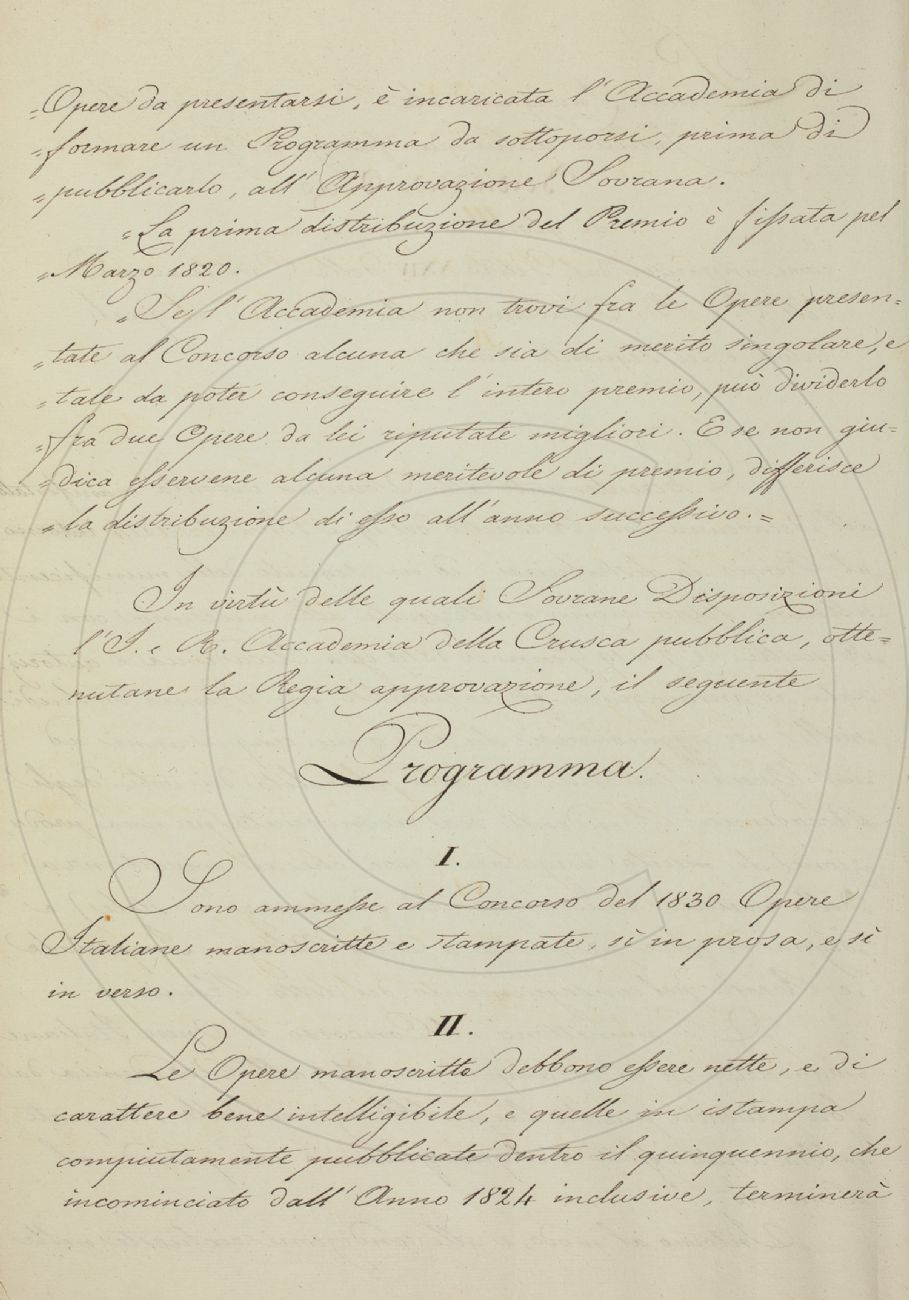 „Opere da presentarsi, è incaricata l'Accademia di
„formare un Programma da sottoporsi, prima di
„pubblicarlo, all'Approvazione Sovrana.
„La prima distribuzione del Premio è fissata pel
„Marzo 1820.
„Se l'Accademia non trovi fra le Opere presen=
„tate al Concorso alcuna che sia di merito singolare, e
„tale da poter conseguire l'intero premio, può dividerlo
„fra due Opere da lei riputate migliori. E se non giu=
„dica esservene alcuna meritevole di premio, differisce
„la distribuzione di esso all'anno successivo.„
In virtù delle quali Sovrane Disposizioni
l'I. e R. Accademia della Crusca pubblica, otte=
nutane la Regia approvazione, il seguente
Programma.
I.
Sono ammesse al Concorso del 1830 Opere
Italiane manoscritte e stampate, sì in prosa, e sì
in verso.
II.
Le Opere manoscritte debbono essere nette, e di
carattere bene intelligibile, e quelle in istampa
compiutamente pubblicate dentro il quinquennio, che
incominciato dall'Anno 1824 inclusive, terminerà